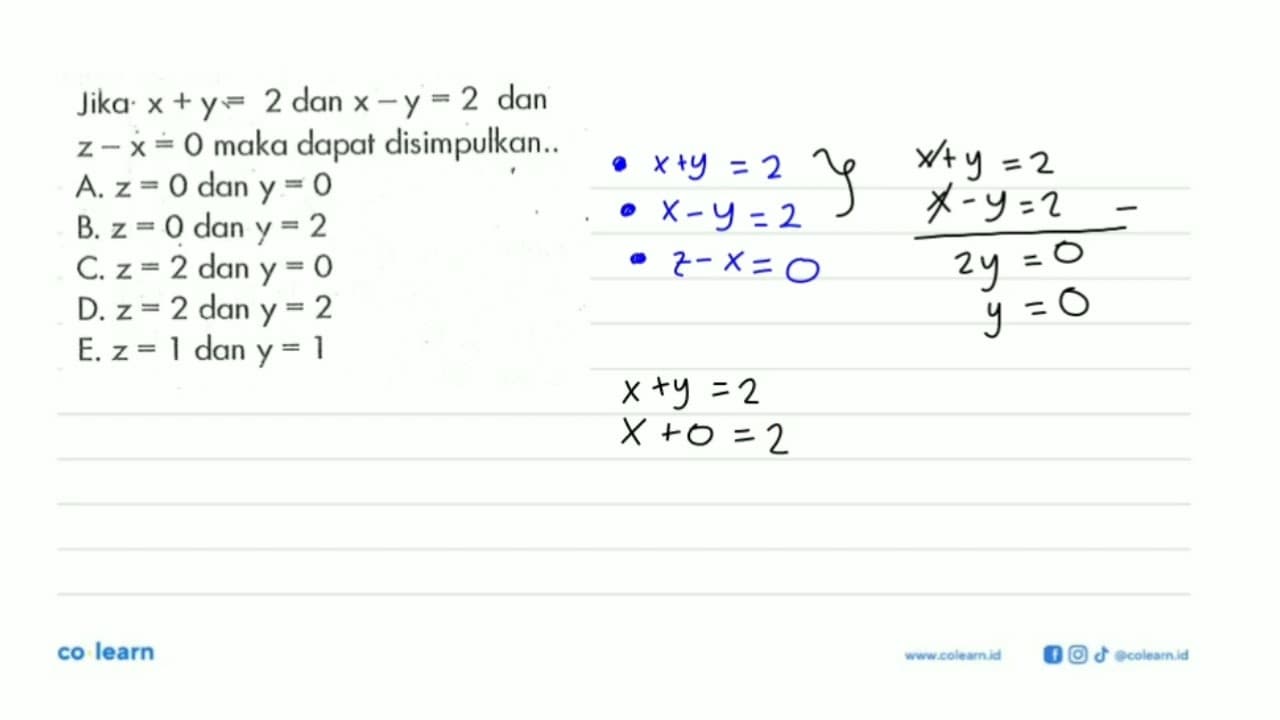 Jika x + y = 2 dan x – y = 2 dan
z – x = 0 maka dapat disimpulkan..
A. z = 0 dan y = 0
B. z = 0 dan y = 2
C. z = 2 dan y = 0
D. z = 2 dan y = 2
E. z = 1 dan y = 1
• x+y = 2
• x-y = 2
• z-x = 0
x+y = 2
x-y = 2 -
2y = 0
y = 0
x+y = 2
x+0 = 2
co learn
www.colearn.id
@colearn.id